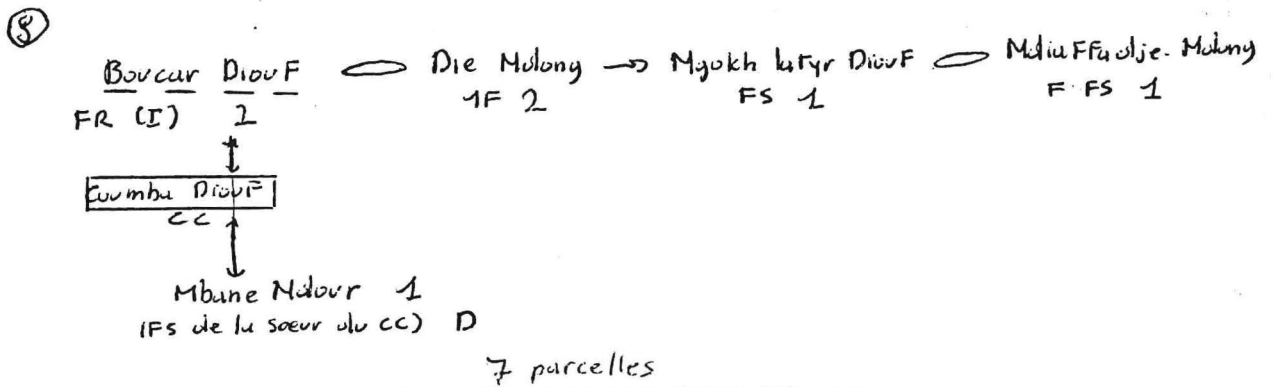 8
Boucar Diouf Die Ndong Ngokh latyr Diouf Ndiaffadje Ndong
FR (I) 2 1F 2 FS 1 F FS 1
Coumba Diouf
CC
Mbane Ndour 1
(FS de la soeur du CC) D
7 parcelles